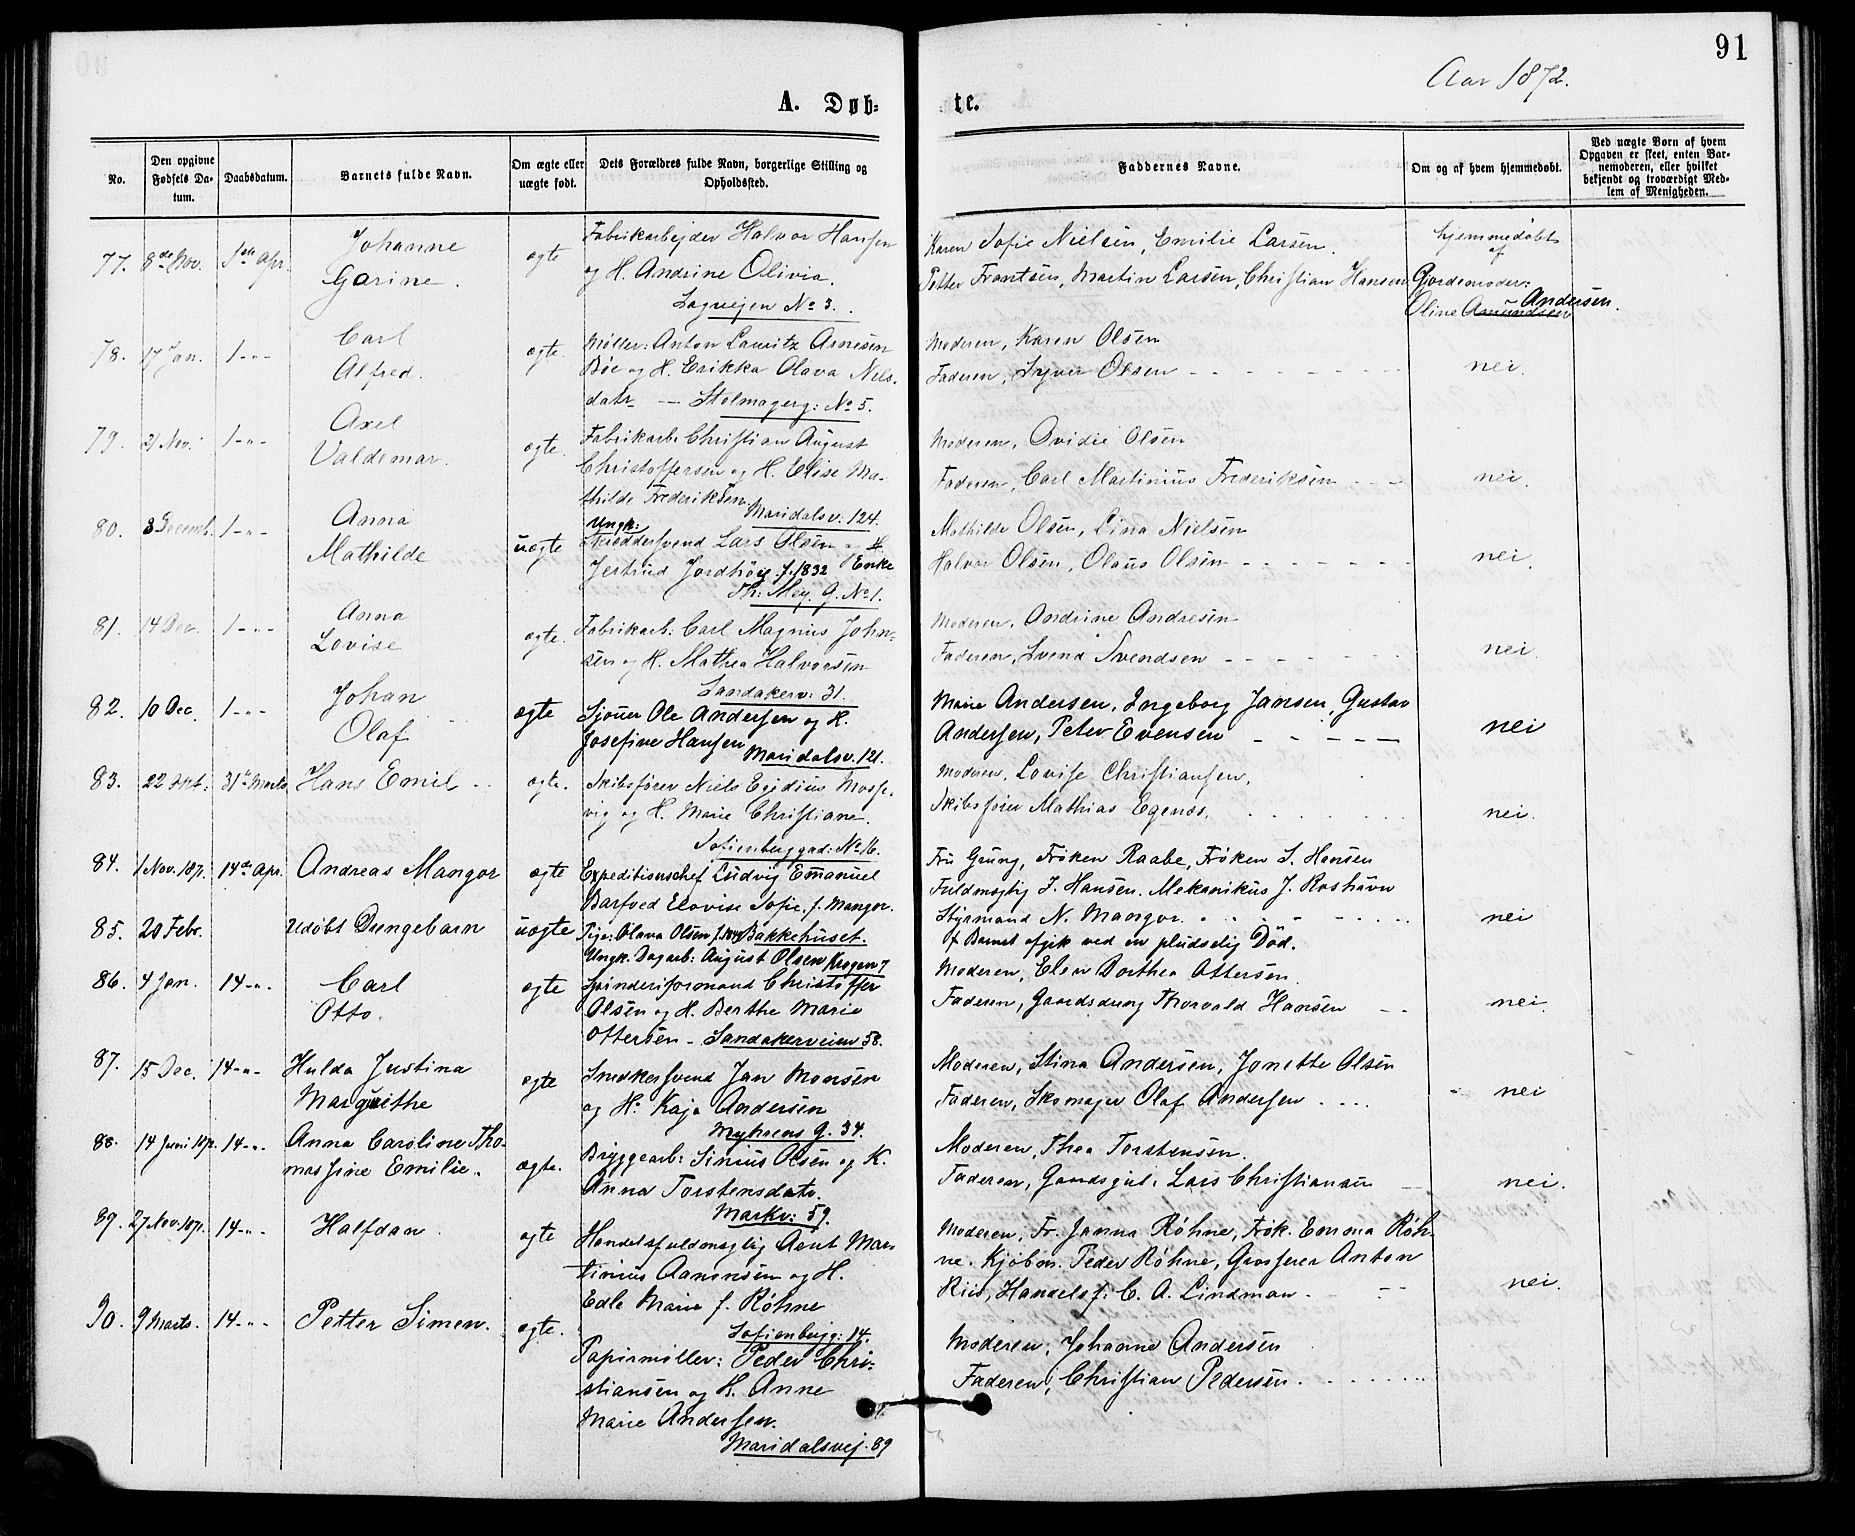 91
Aar 1872.
A. Døb-
te.
No.
Den opgivne Fødsels Datum.
Daabsdatum.
Barnets fulde Navn.
Om ægte eller uægte født.
Dets Forældres fulde Navn, borgerlige Stilling og Opholdssted.
Faddernes Navne.
Om og af hvem hjemmedøbt.
Ved uægte Børn af hvem Opgaven er skeet, enten Barnemoderen, eller hvilket bekjendt og troværdigt Medlem af Menigheden.
77. 8de Nov. 1ste Apr. Johanne
Garine.
ægte
Fabrikarbejder Halvor Hansen
og H. Andrine Olivia.
Sagvejen No 3.
Karen Sofie Nielsen, Emilie Larsen.
Petter Frantsen, Martin Larsen, Christian Hansen
hjemmedøbt
af
Gjordemoder:
Andersen.
Oline Amundsen
78. 17 Jan. 1-"-
Carl
Alfred.
ægte.
Møller: Anton Lauritz Arnesen
Böe og H. Erikka Olava Nels-
datr — Stolmagerg: No 5.
Moderen, Karen Olsen
Faderen, Syver Olsen
nei.
79. 21 Nov. 1-"-
Axel
Valdemar.
ægte.
Fabrikarb. Christian August
Christoffersen og H. Elise Ma-
thilde Frederiksen.
Maridalsv: 124.
Moderen, Ovidie Olsen
Faderen, Carl Martinius Frederiksen
nei.
80. 3 Decemb. 1-"-
Anna
Mathilde
uægte
Ungk:
Skræddersvend Lars Olsen og H
Jertrud Jordhøy f. 1832 Enke
Th: Mey. G. No 1.
Mathilde Olsen, Lina Nielsen
Halvor Olsen, Olaus Olsen
nei.
81. 14 Dec. 1-"-
Anna
Lovise
ægte.
Fabrikarb: Carl Magnus John-
sen og H. Mathea Halvorsen
Sandakerv: 31.
Moderen. Andrine Andresen
Faderen, Svend Svendsen
nei.
82. 10 Dec. 1-"-
Johan
Olaf
ægte
Sjouer Ole Andersen og H.
Josefine Hansen
Maridalsv. 121.
Marie Andersen, Ingeborg Jansen, Gustav
Andersen, Peter Evensen
nei
83. 22 Oct. 31te Marts Hans Emil
ægte.
Skibsfører Niels Egidius Mosse-
vig og H. Marie Christiane.
Sofienberggad: No 16.
Moderen, Lovise Christiansen,
Skibsfører Mathias Egenæs.
nei.
84. 1 Nov. 1871. 14de Apr. Andreas Mangor
ægte
Expeditionschef Ludvig Emanuel
Barfoed Elovise Sofie. f. Mangor.
Fru Grung, Frøken Raabe, Frøken S. Hansen
Fuldmægtig J. Hansen. Mekanikus J. Roshavn
Styrmand N. Mangor.
nei
85. 20 Febr. Udøbt Drengebarn
uægte
Pige: Olava Olsen Bakkehuset.
Ungk. Dagarb: August Olsen Krogen 7
Barnet afgik ved en pludselig Død.
86. 4 Jan. 14-"-
Carl
Otto.
ægte
Spinderiformand Christoffer
Olsen og H. Berthe Marie
Ottersen - Sandakerveien 58.
Moderen, Elen Dorthea Ottersen
Faderen, Gaardsdreng Thorvald Hansen
nei.
87. 15 Dec. 14-"-
Hulda Justina
Margrethe
ægte
Snedkersvend Jan Monsen
og H: Kaja Andersen
Myhrens G. 34.
Moderen, Stina Andersen, Jonette Olsen
Faderen, Skomager Olaf Andersen
nei
88. 14 Juni 1871. 14-"-
Anna Caroline Tho-
massine Emilie.
ægte.
Bryggearb: Sinius Olsen og K.
Anna Torstensdatr.
Markv: 59.
Moderen, Thea Torstensen.
Faderen, Gaardsgut. Lars Christiansen
nei.
89. 27 Nov. 1871. 14-"-
Halfdan.
ægte
Handelsfuldmægtig Aent Mar-
tinius Aanonsen og H.
Edle Marie f. Røhne
Sofienbergg: 14.
Moderen, Fr. Janna Røhne, Frøk. Emma Røh-
ne. Kjøbm. Peder Røhne, Grosserer Anton
Riis, Handelsf: C. A. Lindman.
nei.
90. 9 Marts. 14-"- Petter Simen.
ægte.
Papirmøller: Peder Chri-
stiansen og H. Anne
Marie Andersen.
Maridalsvej. 89
Moderen, Johanne Andersen
Faderen, Christian Pedersen.